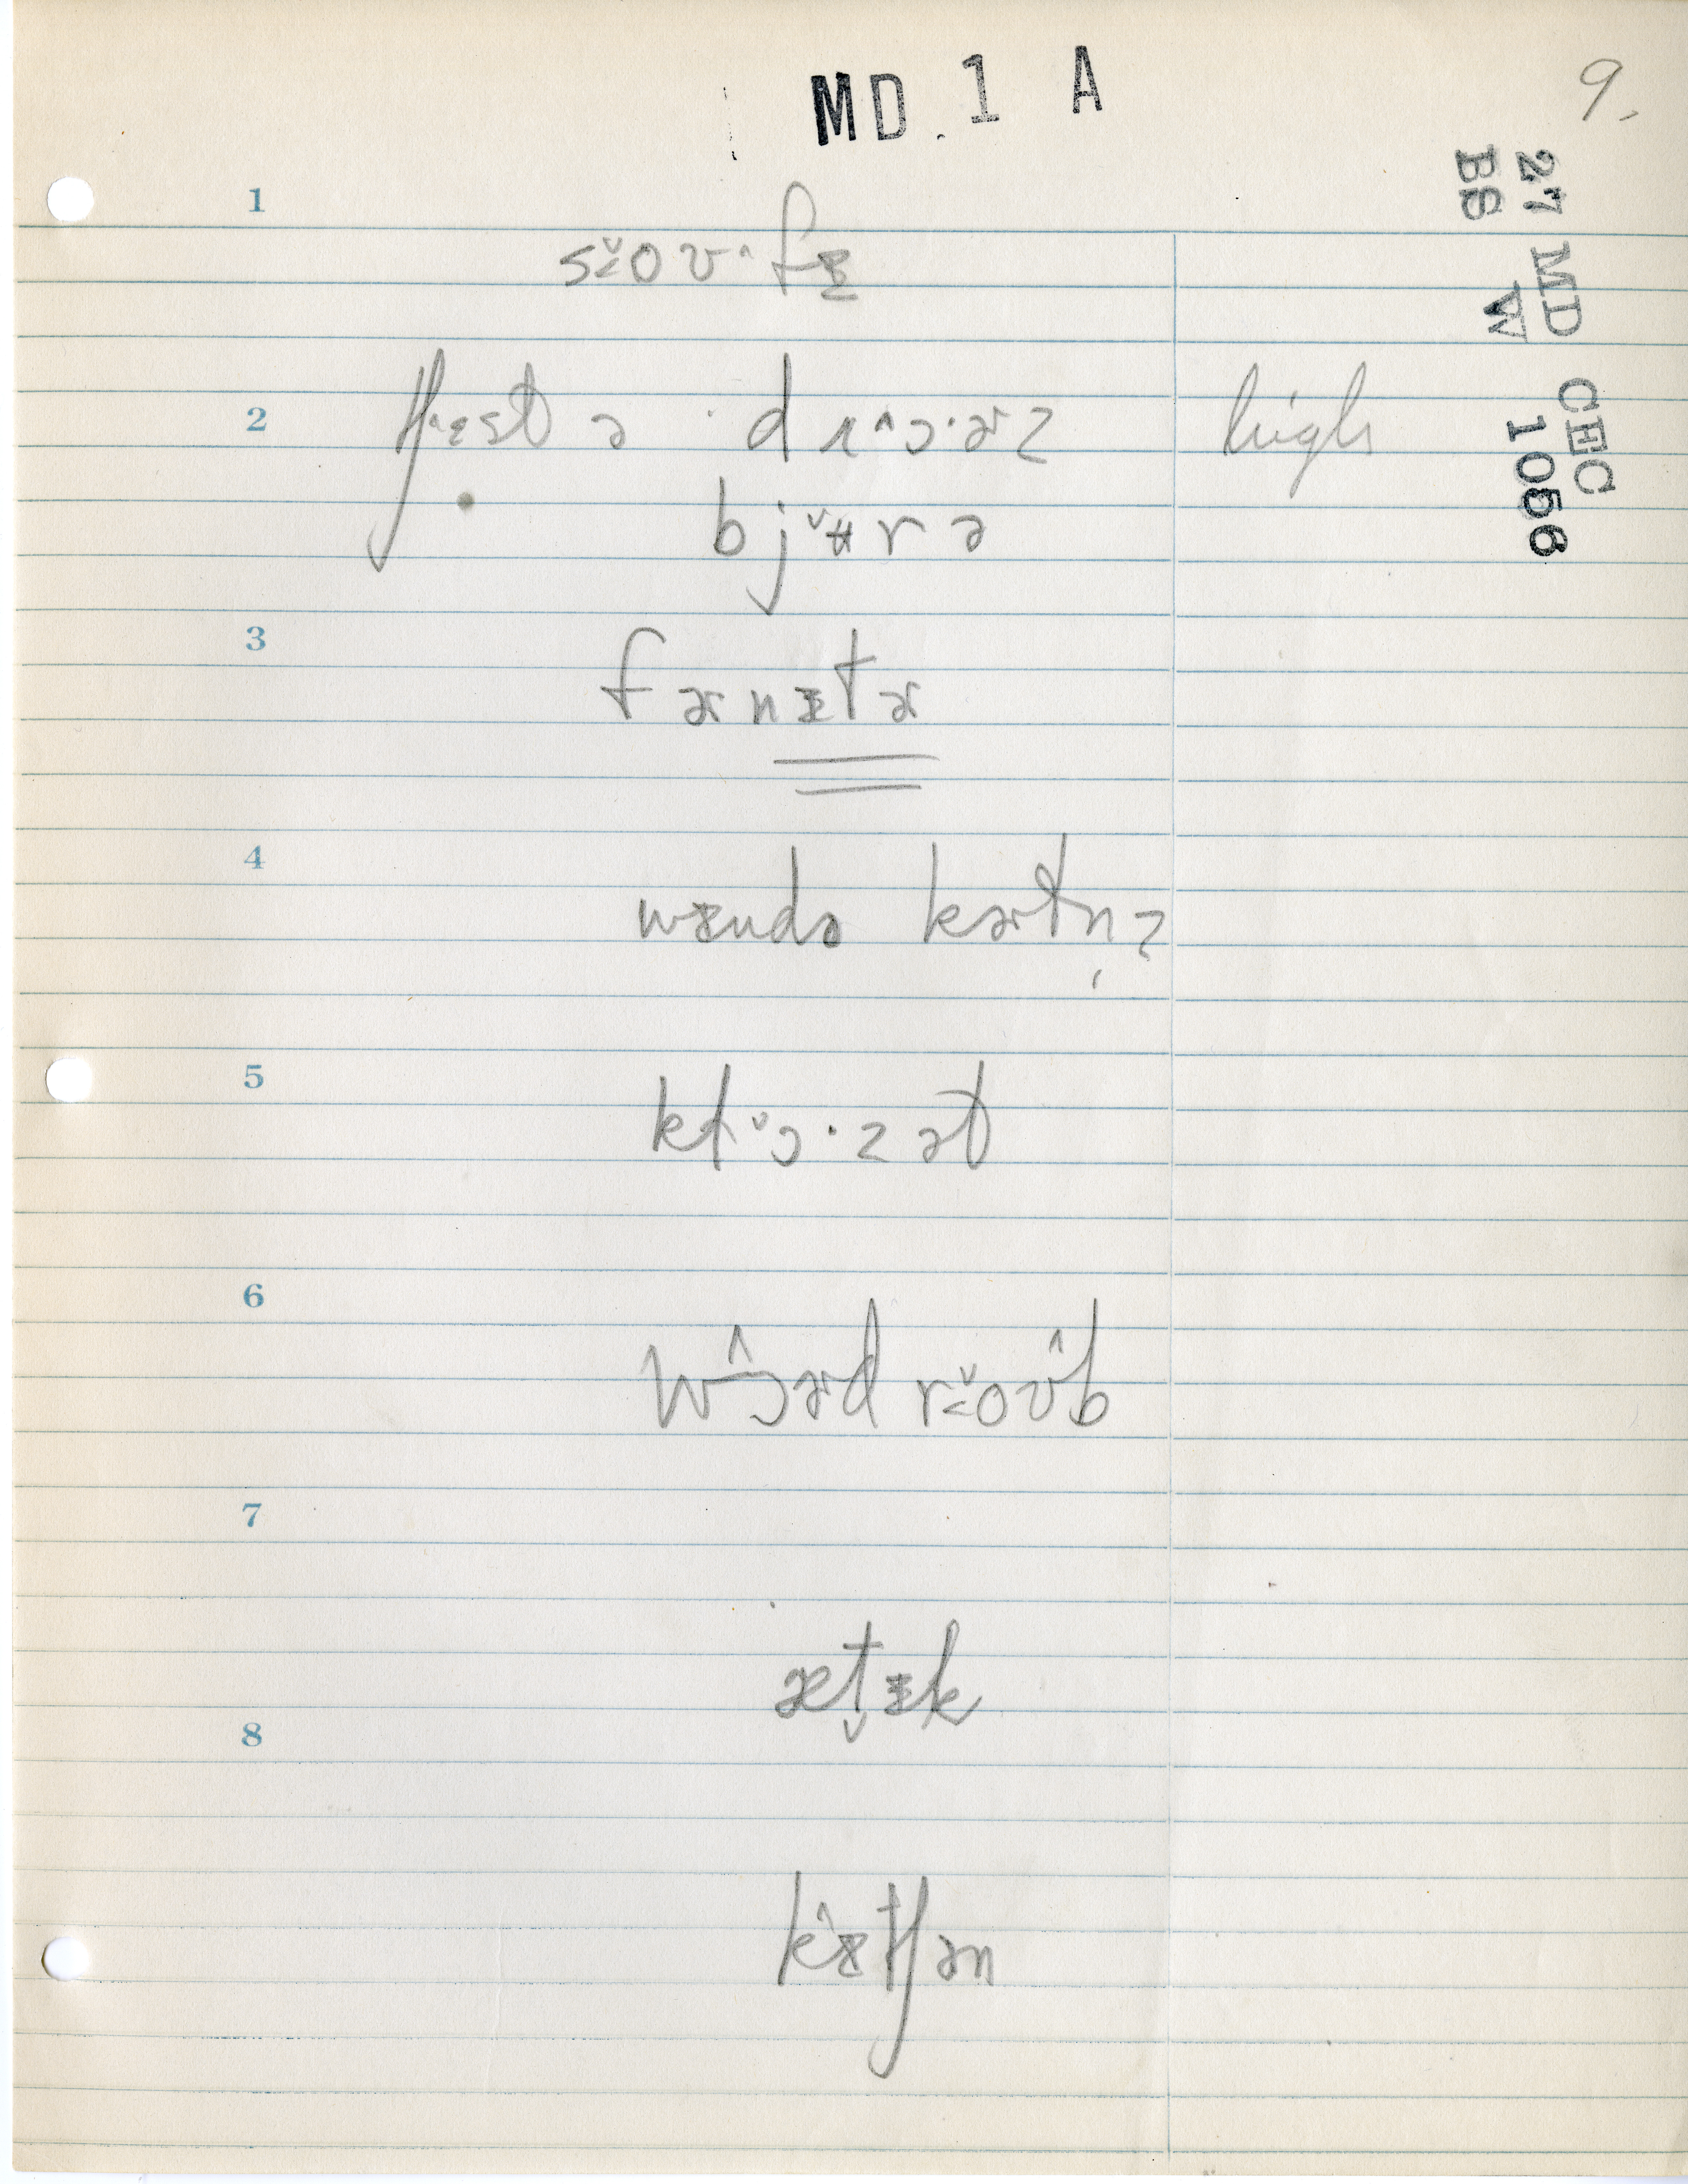 MD. 1 A
9.
27 MD CEC 1056
BS W
1
s<̌oʊ^·fɪ
2
tʃ^ɛst ə · drɔ^·ɚz high
bjʉ̌rə
3
fɚnɪtɚ
4
wɪndə kɚtn̩z
5
klɔ̌·zət
6
wɔ̂ɚd r<̌oʊ̂b
7
ætɪ̬k
8
kɪ̂tʃən